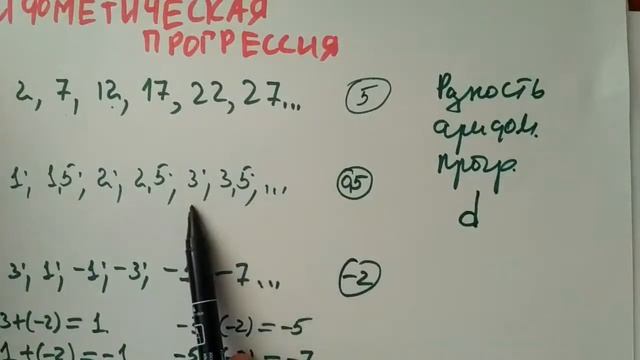 ИФМЕТИЧЕСКАЯ
ПРОГРЕССИЯ
2, 7, 12, 17, 22, 27... 5
Разность
арифм.
прогр.
d
1; 1,5; 2; 2,5; 3; 3,5; ... 0,5
3; 1; -1; -3; - -7... -2
3+(-2)=1 - (-2)=-5
1+(-2)=-1 -5 (-2)=-7